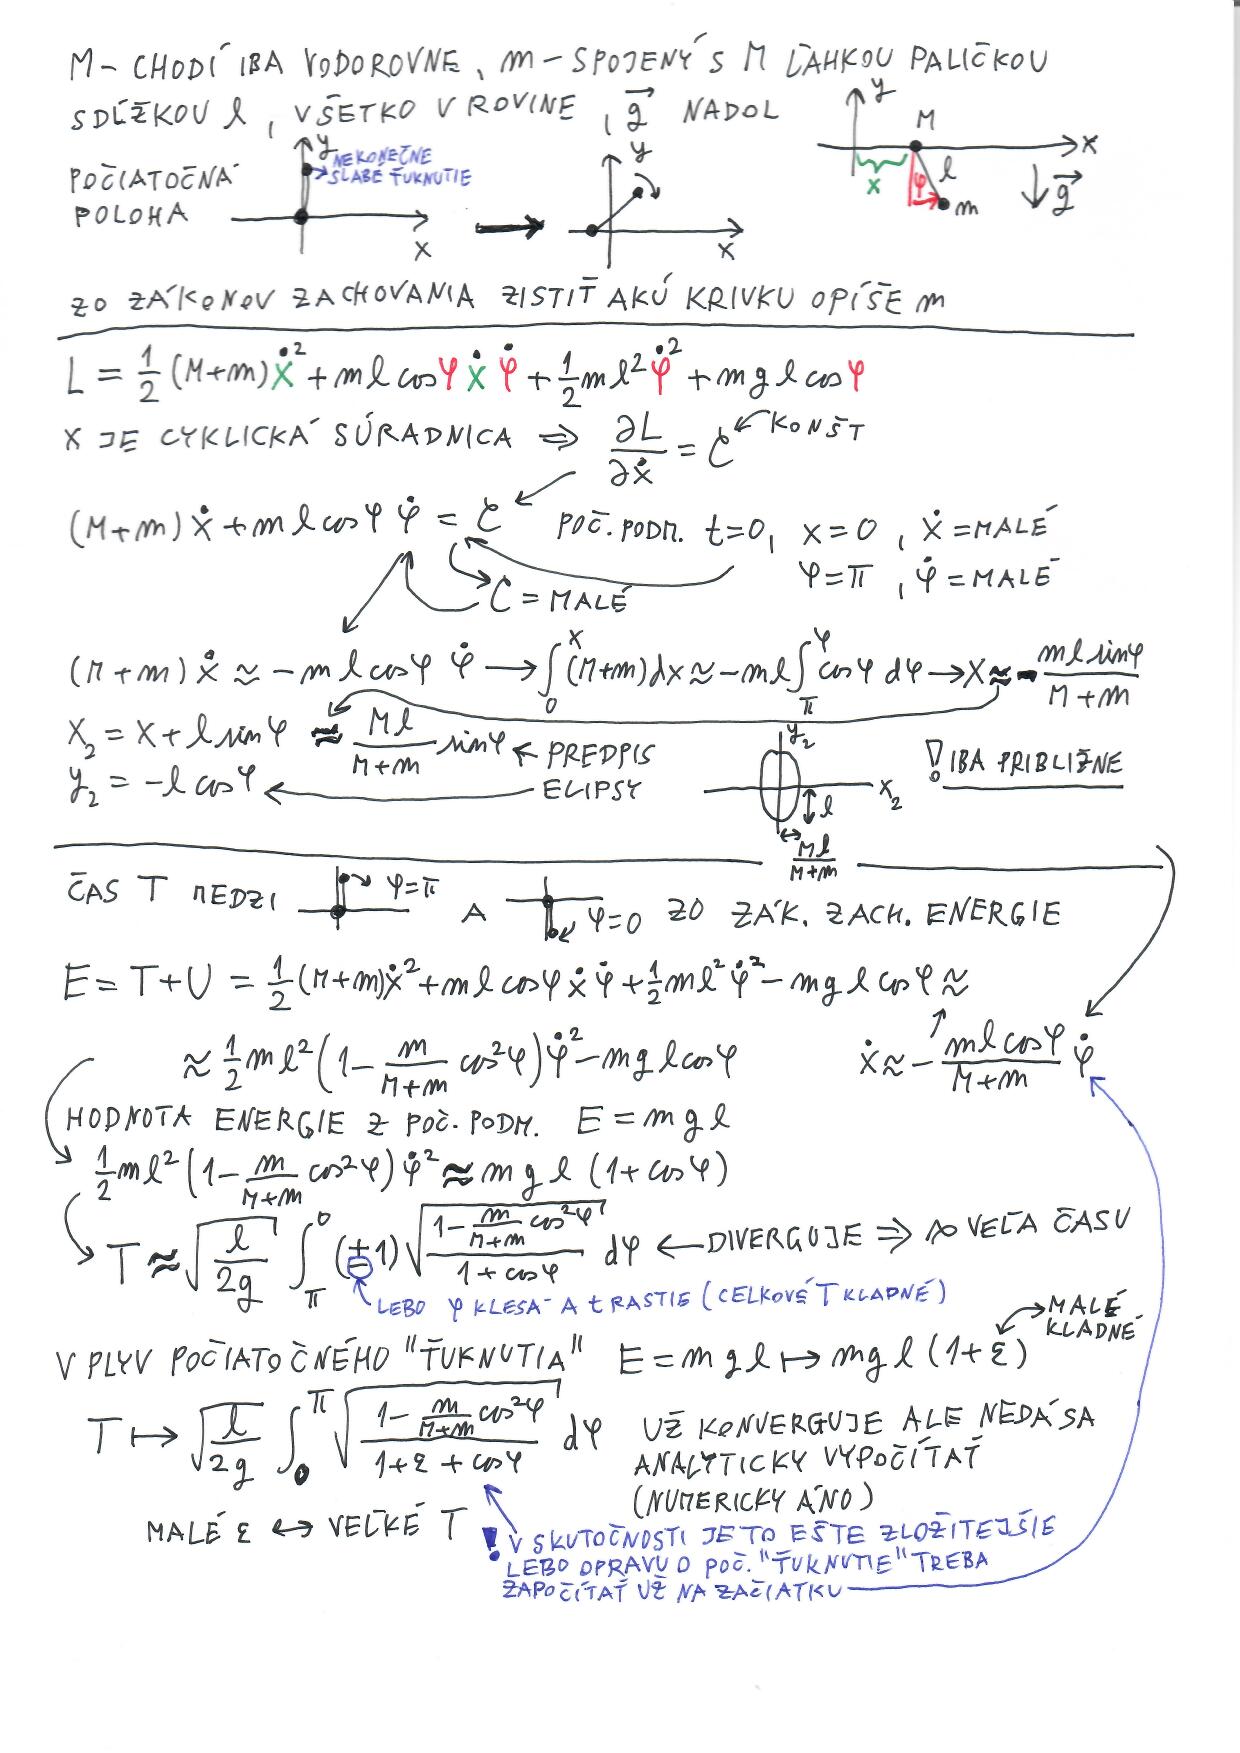 M – CHODÍ IBA VODOROVNE, m – SPOJENÝ S M ĽAHKOU PALIČKOU
S DĹŽKOU l, VŠETKO V ROVINE, g⃗ NADOL
y
M
x
x
l
φ
m
g⃗
POČIATOČNÁ
POLOHA
y
NEKONEČNE
SLABÉ ŤUKNUTIE
x
y
x
ZO ZÁKONOV ZACHOVANIA ZISTIŤ AKÚ KRIVKU OPÍŠE m
L = 1/2 (M+m)ẋ² + ml cosφ ẋ φ̇ + 1/2 ml² φ̇² + mgl cosφ
X JE CYKLICKÁ SÚRADNICA ⇒ ∂L/∂ẋ = C KONŠT
(M+m)ẋ + ml cosφ φ̇ = C POČ. PODM. t=0, x=0, ẋ=MALÉ
φ=π, φ̇=MALÉ
C = MALÉ
(M+m)ẋ ≈ -ml cosφ φ̇ → ∫₀ˣ (M+m)dx ≈ -ml ∫_π^φ cosφ dφ → x ≈ - ml sinφ/(M+m)
x₂ = x + l sinφ ≈ Ml/(M+m) sinφ ← PREDPIS
y₂ = -l cosφ ← ELIPSY
y₂
x₂
l
Ml/(M+m)
! IBA PRIBLIŽNE
ČAS T MEDZI φ=π A φ=0 ZO ZÁK. ZACH. ENERGIE
E = T+U = 1/2 (M+m)ẋ² + ml cosφ ẋ φ̇ + 1/2 ml² φ̇² - mgl cosφ ≈
≈ 1/2 ml² (1 - m/(M+m) cos²φ) φ̇² - mgl cosφ ẋ ≈ - ml cosφ/(M+m) φ̇
HODNOTA ENERGIE Z POČ. PODM. E = mgl
1/2 ml² (1 - m/(M+m) cos²φ) φ̇² ≈ mgl (1+cosφ)
T ≈ √(l/2g) ∫_π^0 (±1) √((1 - m/(M+m) cos²φ)/(1+cosφ)) dφ ← DIVERGUJE ⇒ ∞ VEĽA ČASU
LEBO φ KLESÁ A t RASTIE (CELKOVÉ T KLADNÉ)
VPLYV POČIATOČNÉHO "ŤUKNUTIA" E = mgl ↦ mgl (1+ε) MALÉ
KLADNÉ
T ↦ √(l/2g) ∫₀^π √((1 - m/(M+m) cos²φ)/(1+ε+cosφ)) dφ UŽ KONVERGUJE ALE NEDÁ SA
ANALYTICKY VYPOČÍTAŤ
(NUMERICKY ÁNO)
MALÉ ε ↔ VEĽKÉ T
! V SKUTOČNOSTI JE TO EŠTE ZLOŽITEJŠIE
LEBO OPRAVU O POČ. "ŤUKNUTIE" TREBA
ZAPOČÍTAŤ UŽ NA ZAČIATKU